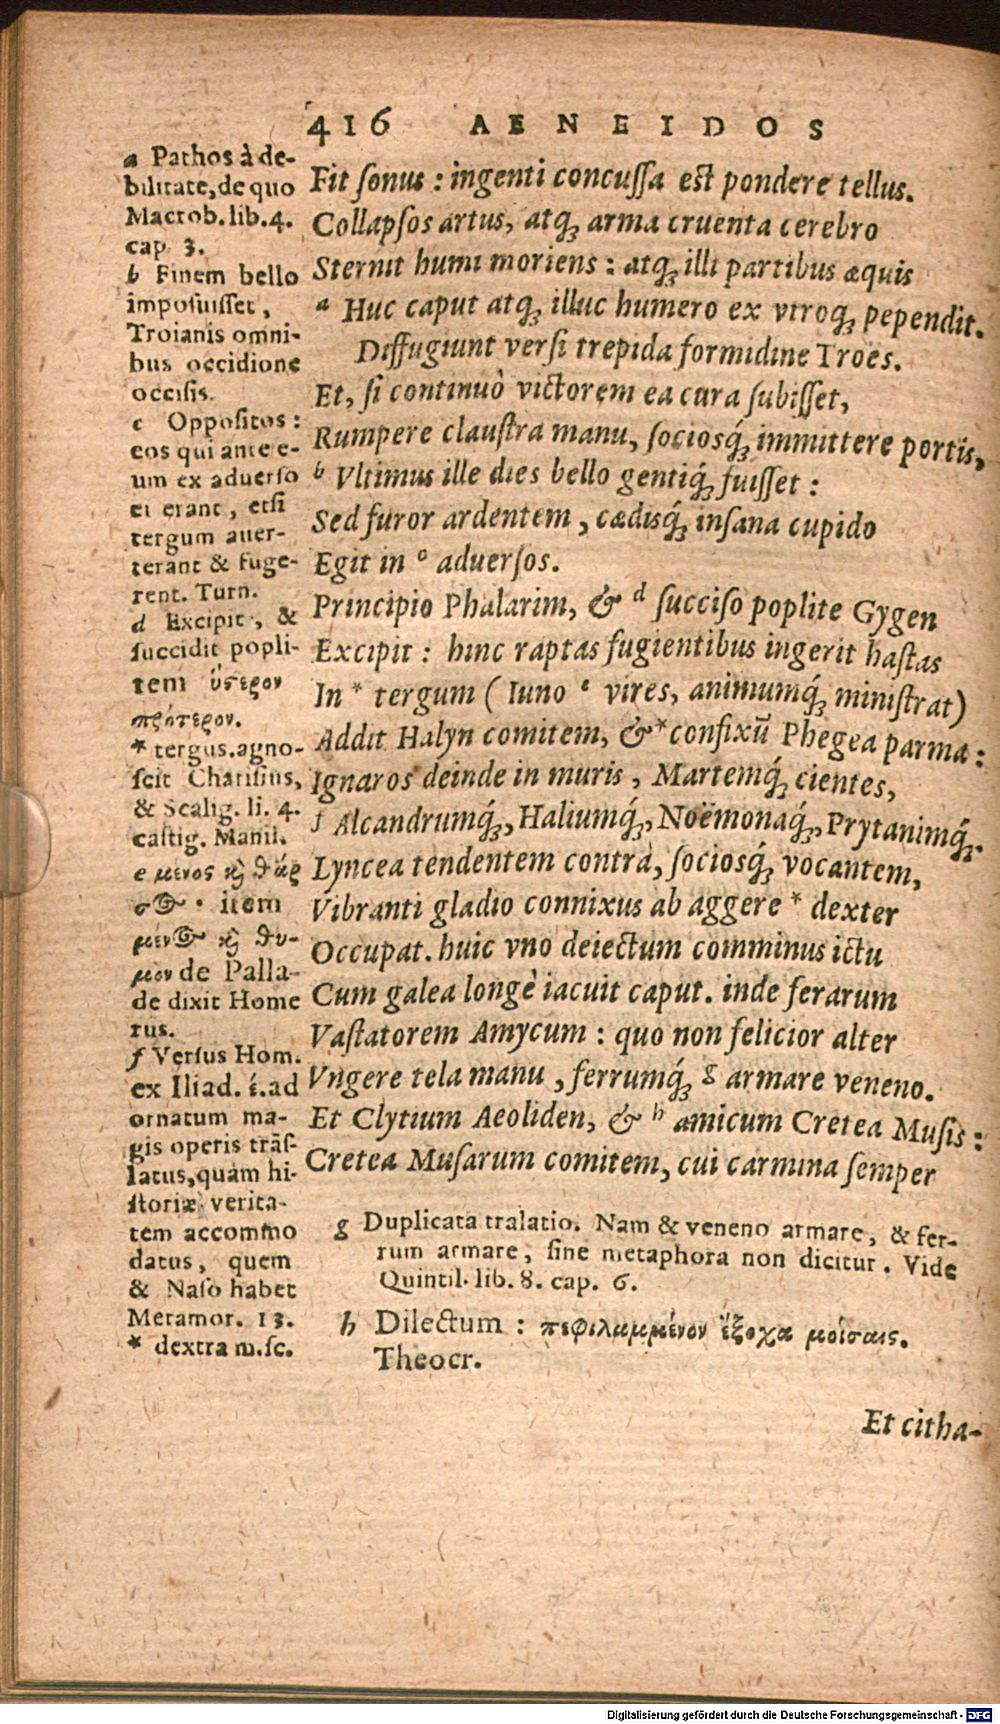 416 AENEIDOS
a Pathos à de-
bilitate, de quo
Macrob. lib. 4.
cap. 3.
b Finem bello
imposuisset,
Troianis omni-
bus occidione
occisis.
c Oppositos:
eos qui ante e-
um ex aduerso
ei erant, etsi
tergum auer-
terant & fuge-
rent. Turn.
d Excipit, &
succidit popli-
tem ὕστερον
πρότερον.
* tergus. agno-
scit Charisius,
& Scalig. li. 4.
castig. Manil.
e μένος καὶ θάρ
σος. item
μένος καὶ θυ-
μὸν de Palla-
de dixit Home
rus.
f Versus Hom.
ex Iliad. έ. ad
ornatum ma-
gis operis trāſ-
latus, quàm hi-
storiæ verita-
tem accommo
datus, quem
& Naso habet
Metamor. 13.
* dextra m. sc.
Fit ſonus: ingenti concuſſa eſt pondere tellus.
Collapſos artus, atq; arma cruenta cerebro
Sternit humi moriens: atq; illi partibus æquis
a Huc caput atq; illuc humero ex vtroq; pependit.
Diffugiunt verſi trepida formidine Troës.
Et, ſi continuò victorem ea cura ſubiſſet,
Rumpere clauſtra manu, ſociosq́; immittere portis,
b Vltimus ille dies bello gentiq́; fuiſſet:
Sed furor ardentem, cædisq́; inſana cupido
Egit in c adverſos.
Principio Phalarim, & d ſucciſo poplite Gygen
Excipit: hinc raptas fugientibus ingerit haſtas
In * tergum (Iuno e vires, animumq́; miniſtrat)
Addit Halyn comitem, & * confixū Phegea parma:
Ignaros deinde in muris, Martemq́; cientes,
f Alcandrumq́;, Haliumq́;, Noëmonaq́;, Prytanimq́;.
Lyncea tendentem contrà, ſociosq́; vocantem,
Vibranti gladio connixus ab aggere * dexter
Occupat. huic vno deiectum comminus ictu
Cum galea longè iacuit caput. inde ferarum
Vaſtatorem Amycum: quo non felicior alter
Vngere tela manu, ferrumq́; g armare veneno.
Et Clytium Aeoliden, & h amicum Cretea Muſis:
Cretea Muſarum comitem, cui carmina ſemper
g Duplicata tralatio. Nam & veneno armare, & fer-
rum armare, sine metaphora non dicitur. Vide
Quintil. lib. 8. cap. 6.
h Dilectum: πεφιλαμμένον ἔξοχα μοίσαις.
Theocr.
Et citha-
Digitalisierung gefördert durch die Deutsche Forschungsgemeinschaft - DFG